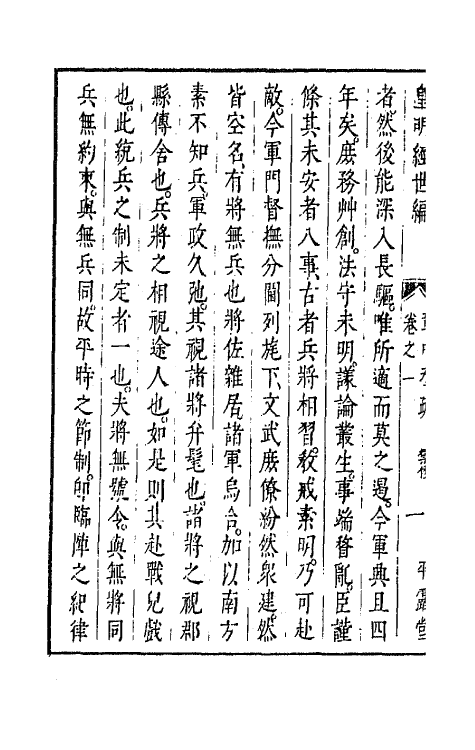 皇明經世編
卷之一
一
平露堂
者然後能深入長驅唯所適而莫之遏今軍興且四
年矣庶務艸創法守未明議論叢生事端瞀亂臣謹
條其未安者八事古者兵將相習教戒素明乃可赴
敵今軍門督撫分閫列旄下文武庶僚紛然衆建然
皆空名有將無兵也將佐雜居諸軍烏合加以南方
素不知兵軍政久弛其視諸將弁髦也諸將之視郡
縣傳舍也兵將之相視途人也如是則其赴戰兒戲
也此統兵之制未定者一也夫將無號令與無將同
兵無約束與無兵同故平時之節制卽臨陣之紀律